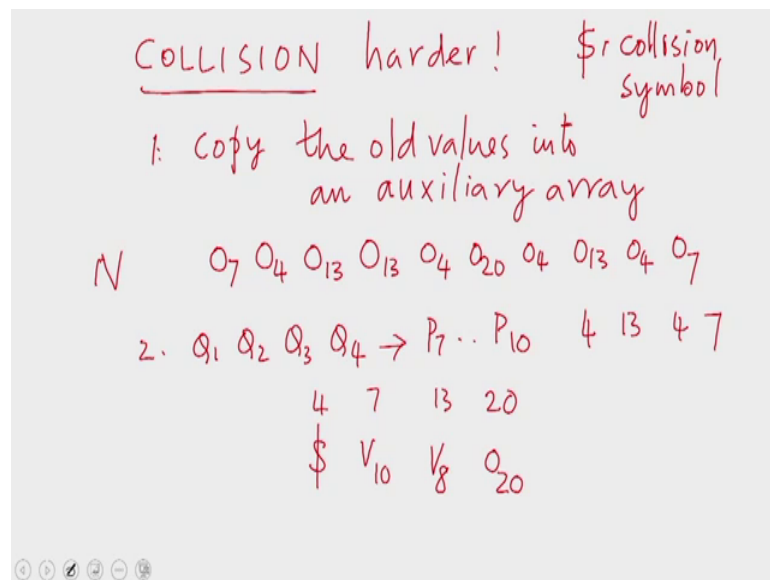 COLLISION harder! $: collision
symbol
1. copy the old values into
an auxiliary array
N O₇ O₄ O₁₃ O₁₃ O₄ O₂₀ O₄ O₁₃ O₄ O₇
2. Q₁ Q₂ Q₃ Q₄ → P₇ .. P₁₀ 4 13 4 7
4 7 13 20
$ V₁₀ V₈ O₂₀